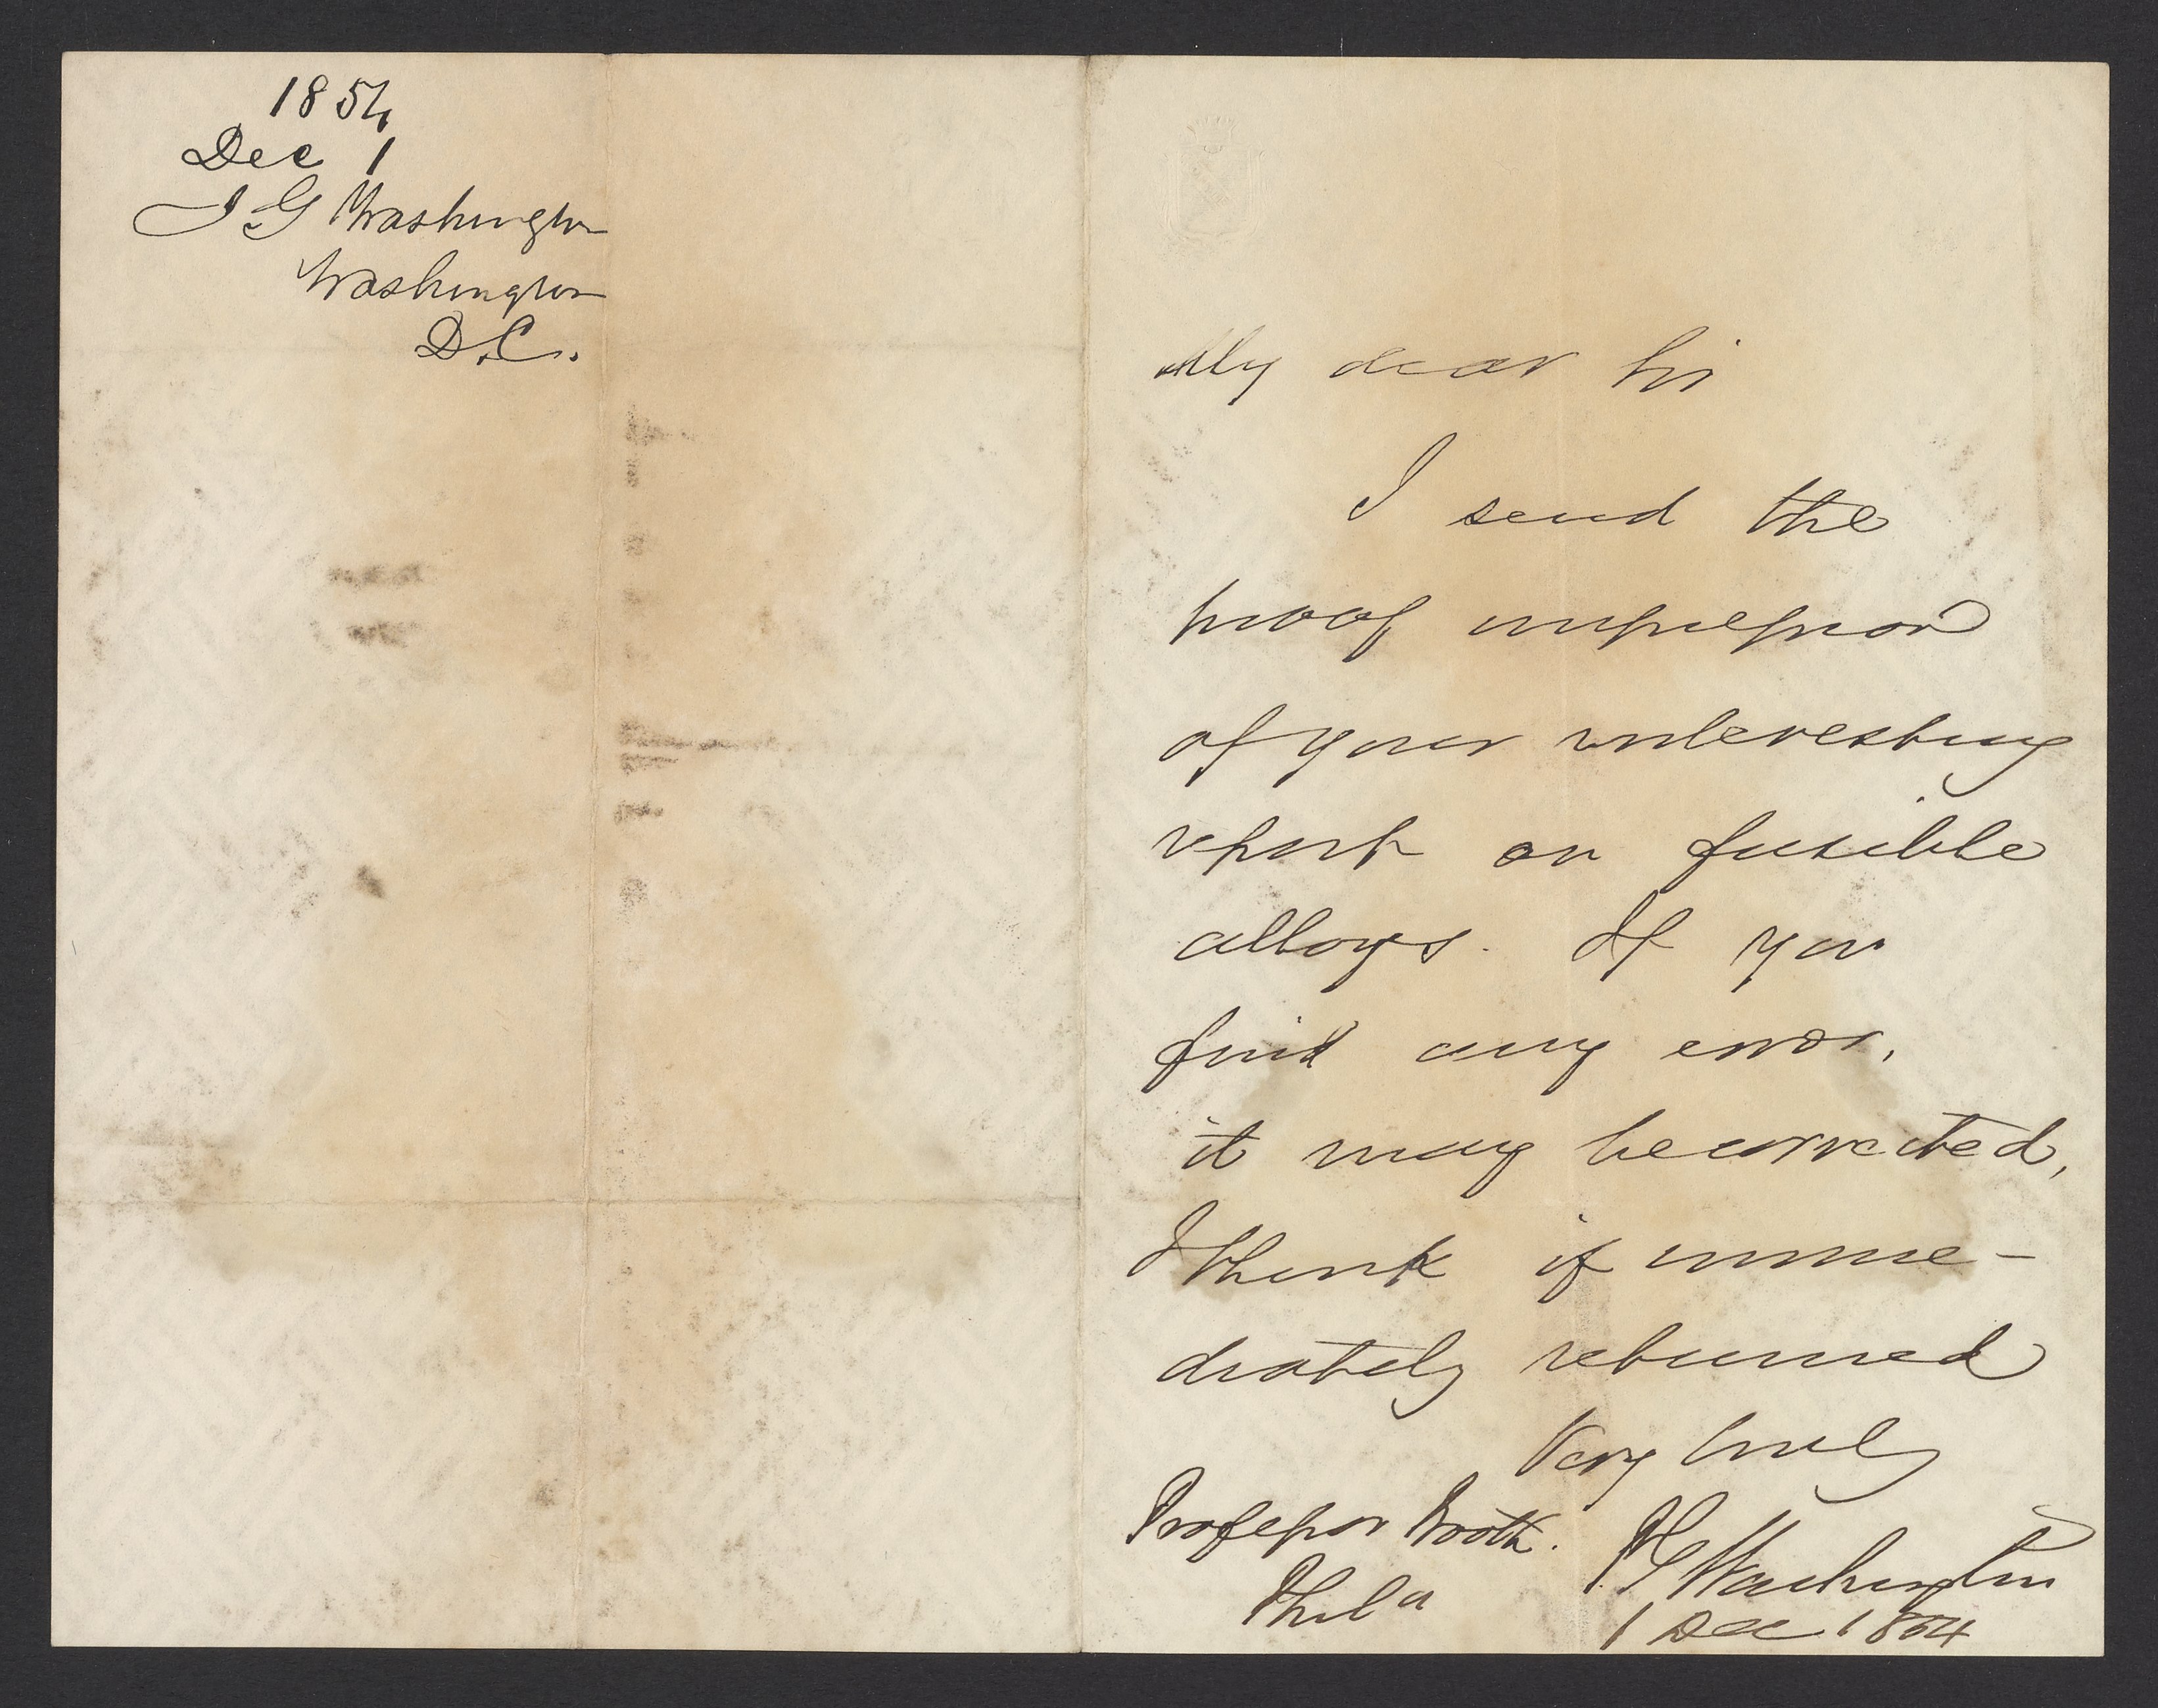 1854
Dec 1
J G Washington
Washington
D.C.
My dear Sir
I send the
proof impression
of your interesting
report on fusible
alloys. If you
find any error,
it may be corrected,
I think if imme-
diately returned
Very truly
Professor Booth.
Phila
P G Washington
1 Dec 1854